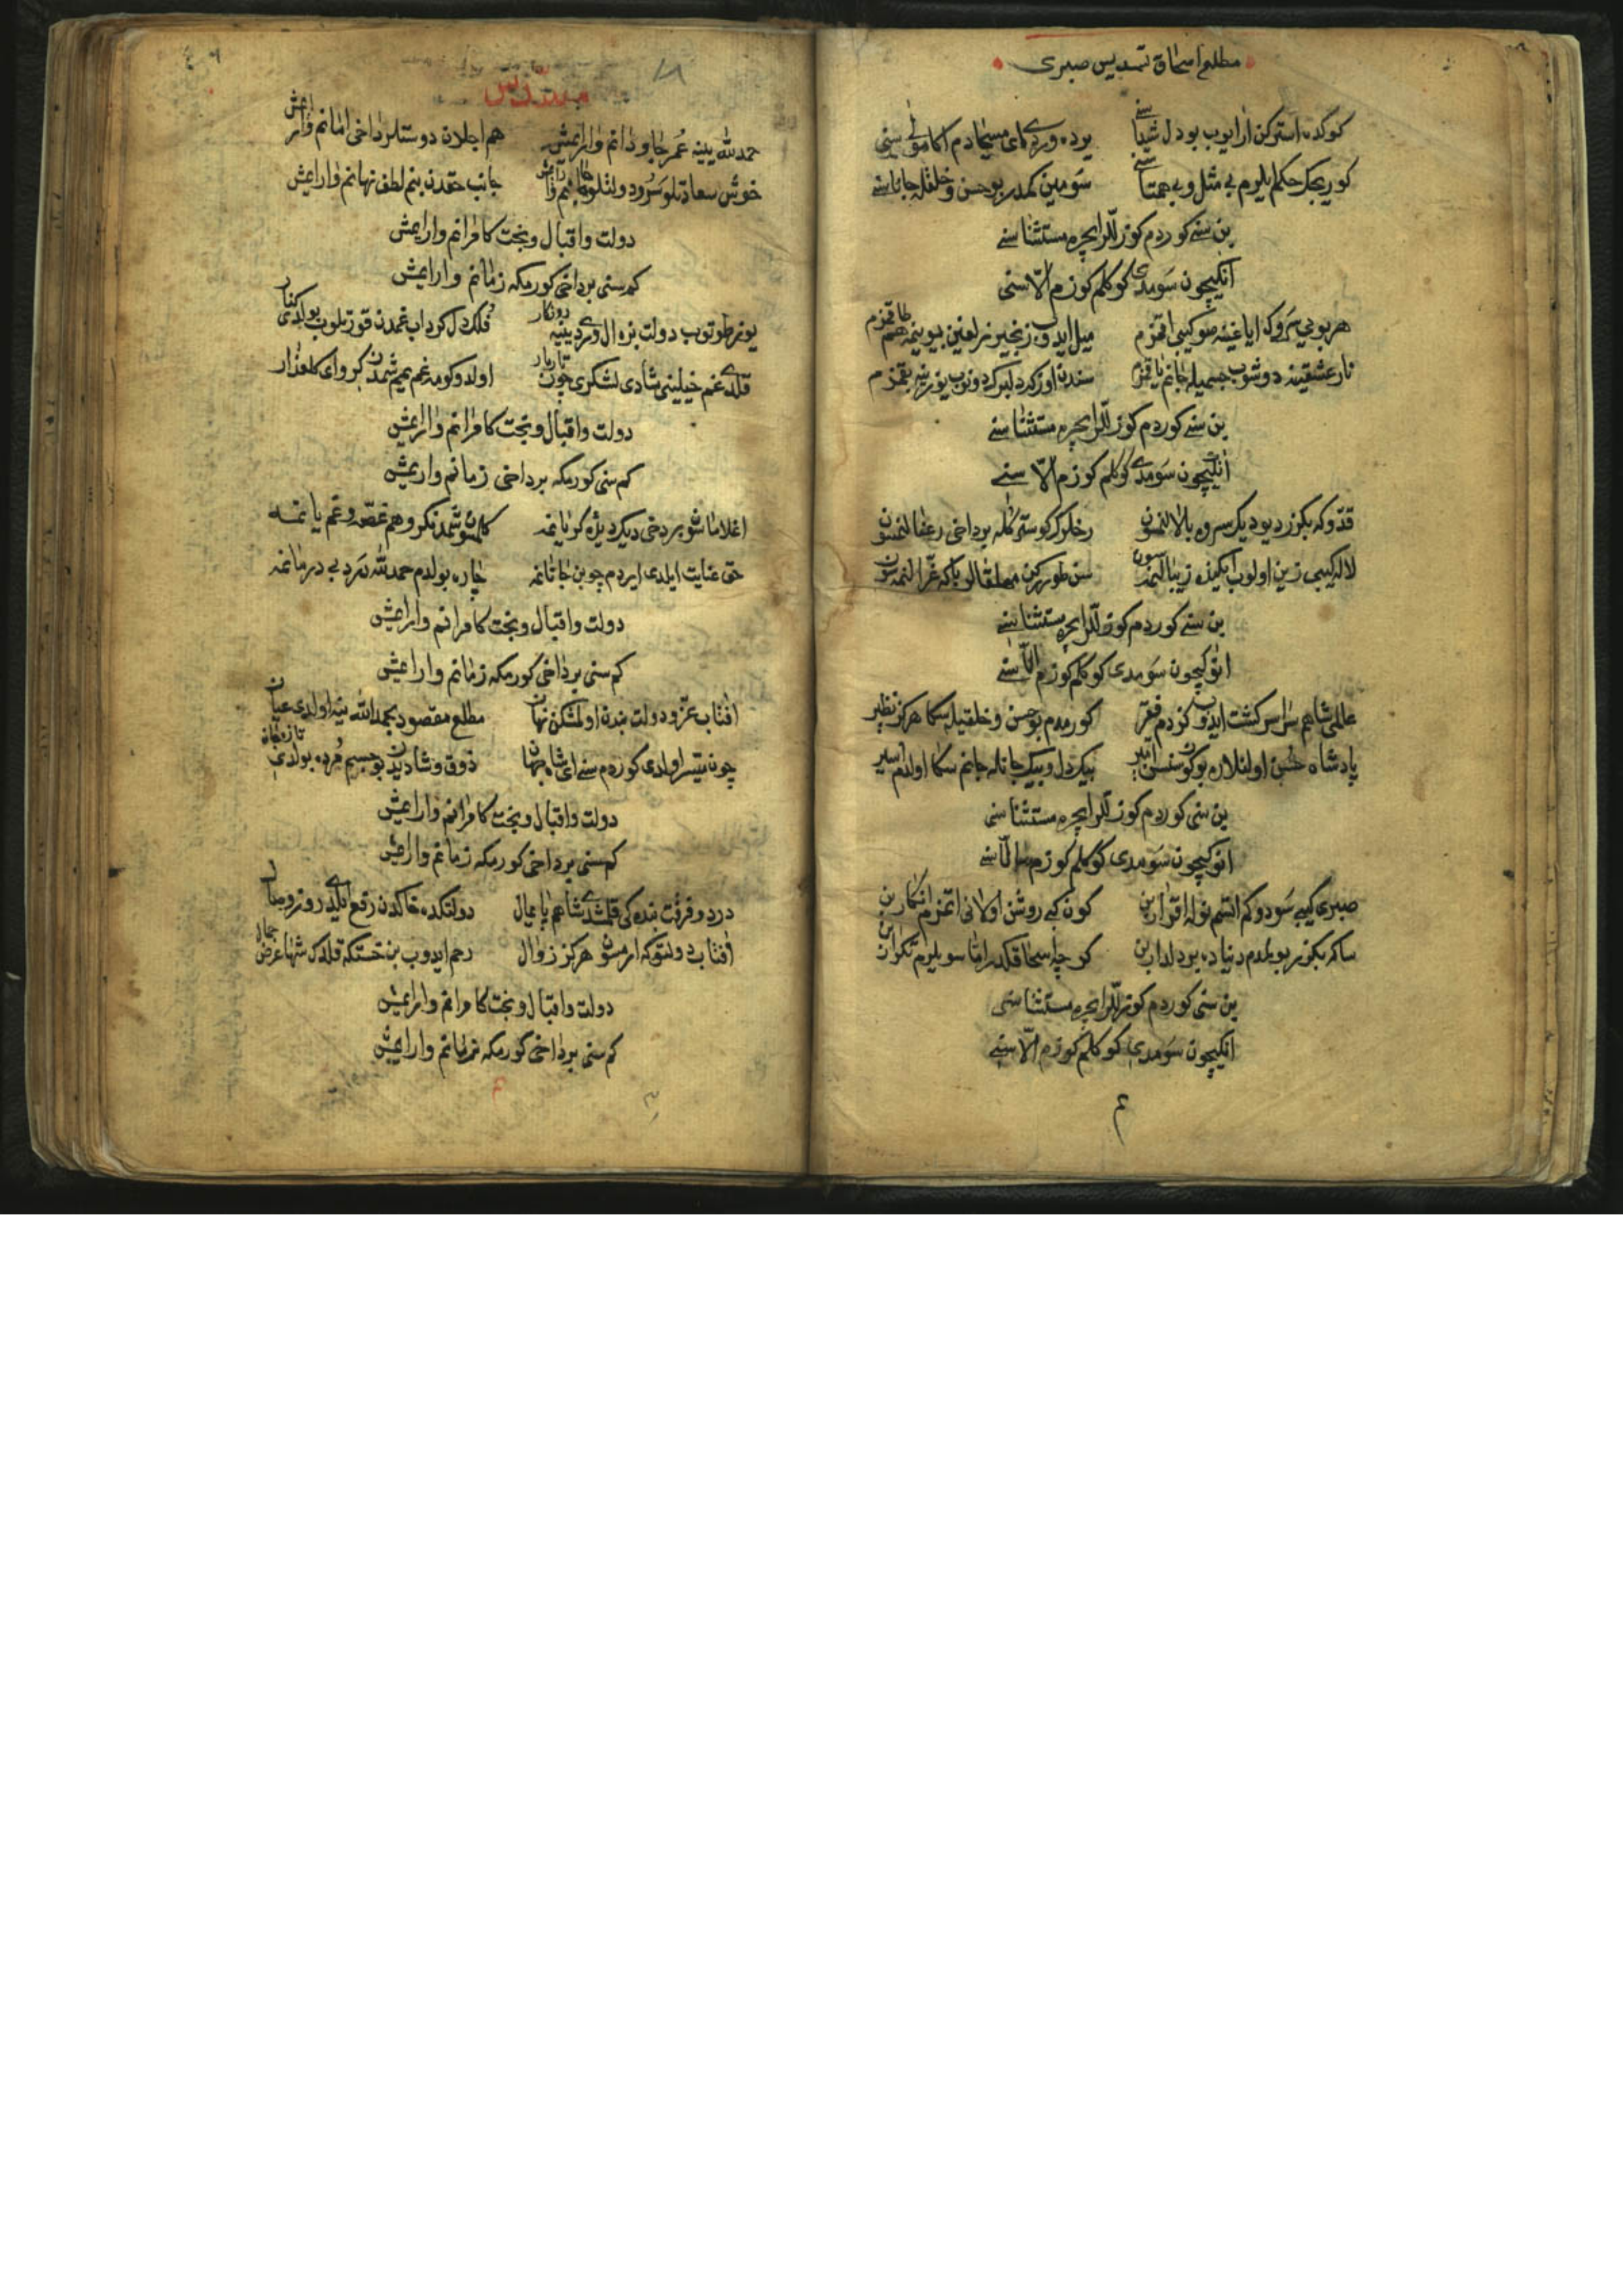 مطلع اسحاق تسدیس صبری
کوکده استرکن ارایوب بو دل شیدا سنی یرده ویردی ای مسیحا دم اکا مولی سنی
کوریجک حکم ایلرم بی مثل و بی همتا سنی سومین کمدر بو حسن و خلقله جانا سنی
بن سنی کوردم کوزللر ایچره مستثنا سنی
انکیچون سومدی کوکلم کوزم الا سنی
هر بویی سروک ایاغینه صو کیبی اقمزم میل ایدوب زنجیر زلفین بیوینمه هم طاقمزم
نار عشقینه دوشوب جسمیله جانم یاقمزم سندن اوزکه دلبرک دونوب یوزینه بقمزم
بن سنی کوردم کوزللر ایچره مستثنا سنی
انکیچون سومدی کوکلم کوزم الا سنی
قدوکه بکزر دیو دیک سروه بالالنمسون رخلرک کوستر کله بر داخی رعنالنمسون
لاله کیبی زین اولوب زیبالنمسون
بن سنی کوردم کوزللر ایچره مستثنا سنی
انوکیچون سومدی کوکلم کوزم الا سنی
عالمی شاهم سراسر کشت ایدوب کزدم فقیر کورمدم بو حسن و خلقیله سکا هرکز نظیر
پادشاه حسن اولنلاره بوکون سنسن امیر بیک دل و بیک جانله جانم سکا اولدم اسیر
بن سنی کوردم کوزللر ایچره مستثنا سنی
انوکیچون سومدی کوکلم کوزم الا سنی
صبری کیبی سودوکم ایتسم نوله اقرار بن کون کبی روشن اولانی ایتمزم انکار بن
ساکه بکزر بولمدم دنیاده بر دلدار بن کرچه اسحاقکدر اما سویلرم تکرار بن
بن سنی کوردم کوزللر ایچره مستثنا سنی
انکیچون سومدی کوکلم کوزم الا سنی
م
مسدس
حمد لله ینه عمر جاودانم وار ایمش هم اجلدن دوستلر داخی امانم وار ایمش
خوش سعادتلو سرور دولتلو وار ایمش جانب حقدن بنم لطف نهانم وار ایمش
دولت و اقبال و بخت کامرانم وار ایمش
کم سنی بر داخی کورمکه زمانم وار ایمش
یوز طوتوب دولت بزوال ویردی ینه روزکار فلک دل کرداب غمدن قورتلوب بولدی کنار
قلدی غم خیلینی شادی لشکری چون تارمار
دولت و اقبال و بخت کامرانم وار ایمش
کم سنی کورمکه بر داخی زمانم وار ایمش
اغلاماشو بر دخی دیک دیده کریانمه غصه و غم یانمه
حق عنایت ایلدی ایردم چو بن جانانمه چاره بولدم حمد لله درد بی درمانمه
دولت و اقبال و بخت کامرانم وار ایمش
کم سنی بر داخی کورمکه زمانم وار ایمش
افتاب عز و دولت بندن اولمشکن نهان مطلع مقصود بحمد الله ینه اولدی عیان
چون میسر اولدی کوردم سنی ای شاه جهان ذوق و شادیدن بو جسم مرده بولدی تازه جان
دولت و اقبال و بخت کامرانم وار ایمش
کم سنی بر داخی کورمکه زمانم وار ایمش
درد و فرقت بنده کی قلمشدی شاهم پایمال دولتکده خاکدن رفع ایلدی روز وصال
افتاب دولتوکه ارمسون هرکز زوال رحم ایدوب بن خسته که قلدک شها عرض جمال
دولت و اقبال و بخت کامرانم وار ایمش
کم سنی بر داخی کورمکه زمانم وار ایمش
م